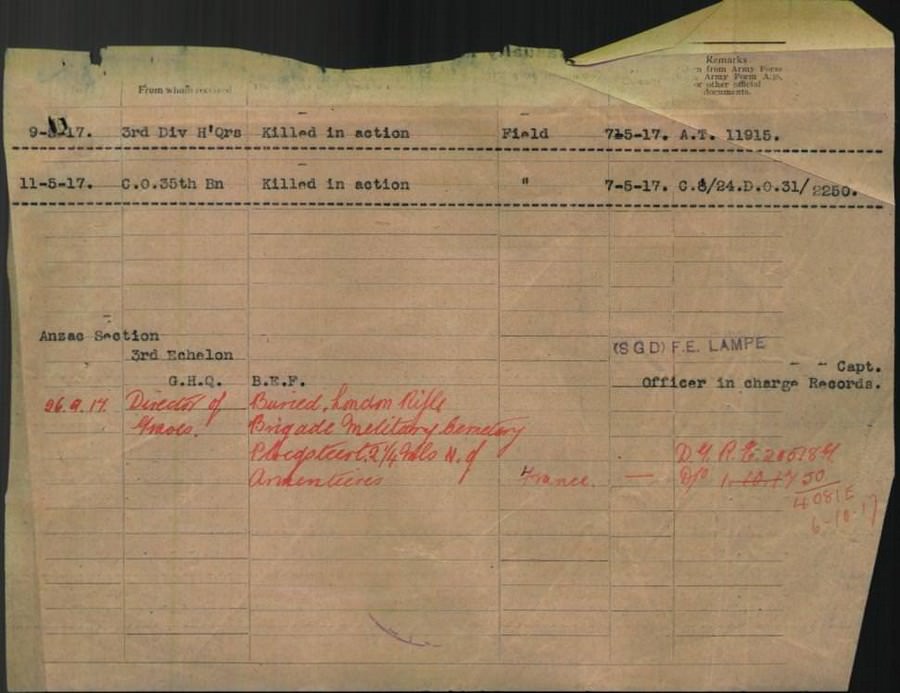 Remarks
from Army Form
Army Form A.36,
or other official
documents.
From whom received
9-5-17. 3rd Div H'Qrs Killed in action Field 7-5-17. A.T. 11915.
11-5-17. C.O.35th Bn Killed in action " 7-5-17. C.8/24.D.O.31/2250.
Anzac Section
3rd Echelon
G.H.Q. B.E.F.
(SGD) F.E. LAMPE
Capt.
Officer in charge Records.
26.9.17. Director of Buried, London Rifle
Graves. Brigade Military Cemetery
Ploegsteert. 2¼ Mls N. of
Armentieres France. —
4081E
6-10-17